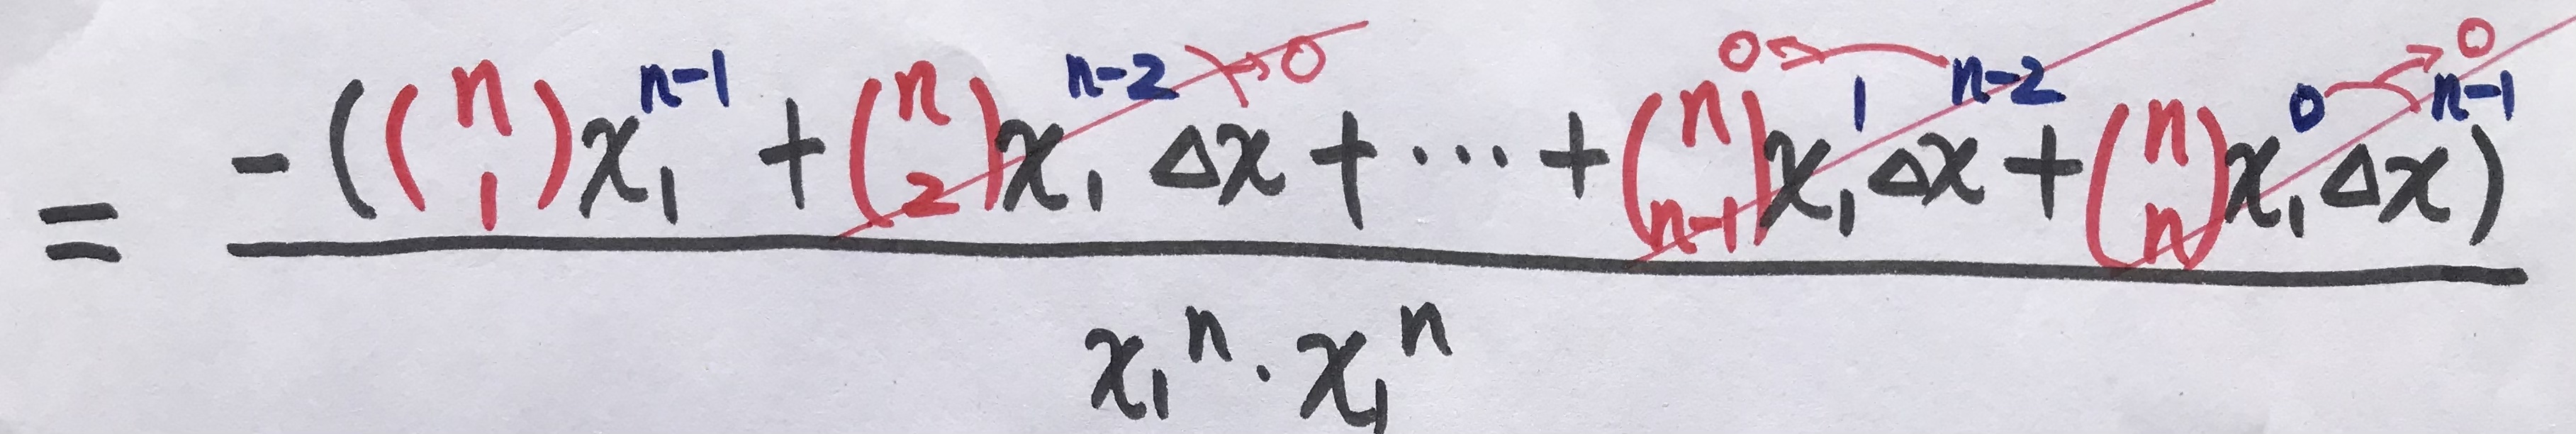 = \frac{-(\binom{n}{1}x_1^{n-1} + \binom{n}{2}x_1^{n-2}Δx + ⋯ + \binom{n}{n-1}x_1^{1}Δx^{n-2} + \binom{n}{n}x_1^{0}Δx^{n-1})}{x_1^n · x_1^n}
→0
0←
→0